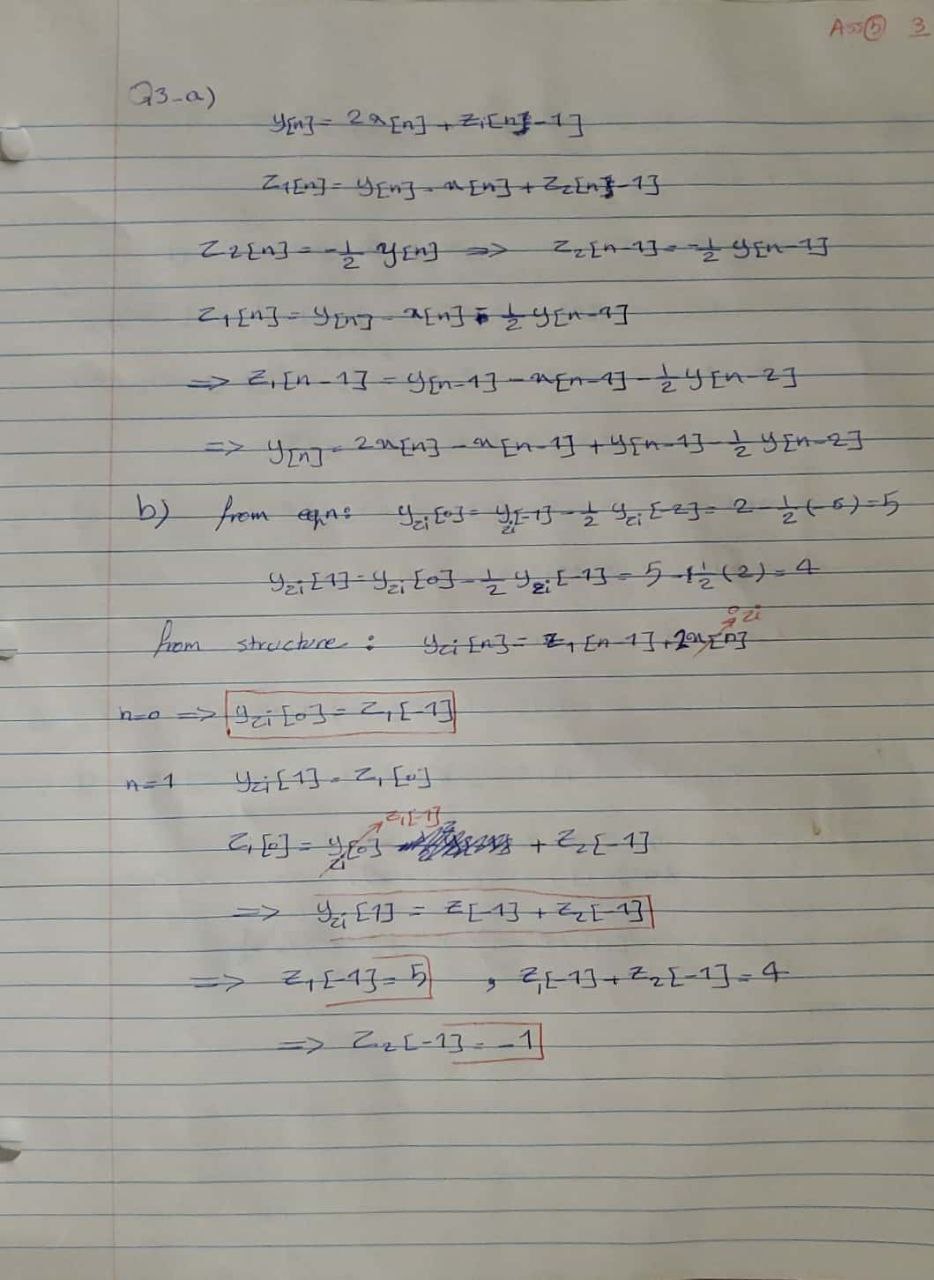 Ass⑤ 3
Q3-a)
y[n] = 2x[n] + z₁[n-1]
z₁[n] = y[n] - x[n] + z₂[n-1]
z₂[n] = -1/2 y[n] => z₂[n-1] = -1/2 y[n-1]
z₁[n] = y[n] - x[n] - 1/2 y[n-1]
=> z₁[n-1] = y[n-1] - x[n-1] - 1/2 y[n-2]
=> y[n] = 2x[n] - x[n-1] + y[n-1] - 1/2 y[n-2]
b) from eqn: y_zi[0] = y_zi[-1] - 1/2 y_zi[-2] = 2 - 1/2 (-6) = 5
y_zi[1] = y_zi[0] - 1/2 y_zi[-1] = 5 - 1/2 (2) = 4
from structure: y_zi[n] = z₁[n-1] + 2x[n] → 0 zi
n=0 => y_zi[0] = z₁[-1]
n=1 y_zi[1] = z₁[0]
z₁[0] = y_zi[0] → z₁[-1] + z₂[-1]
=> y_zi[1] = z[-1] + z₂[-1]
=> z₁[-1] = 5 , z₁[-1] + z₂[-1] = 4
=> z₂[-1] = -1